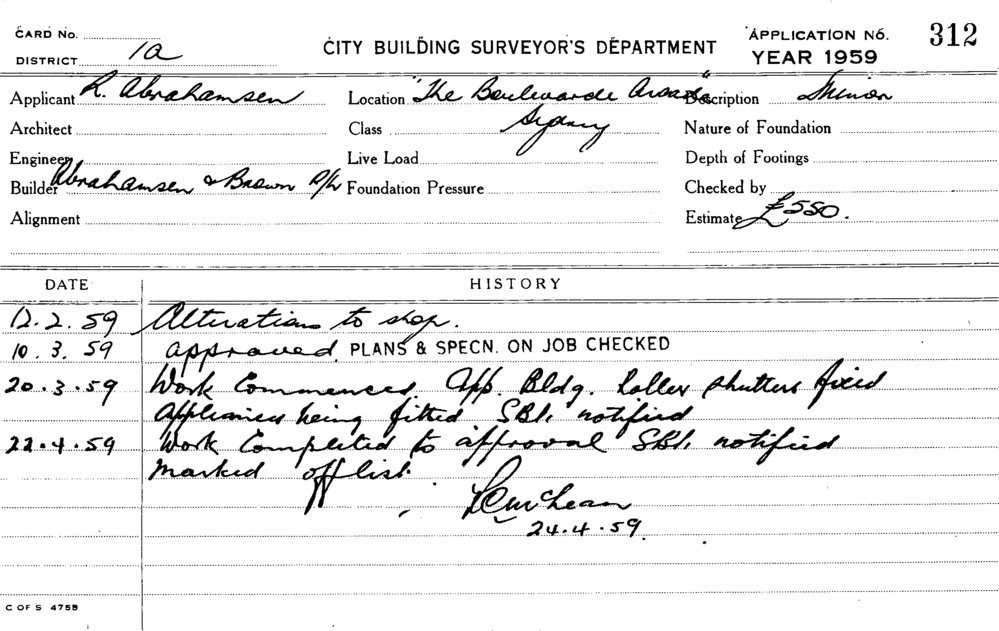 CARD No.
DISTRICT 1a
CITY BUILDING SURVEYOR'S DEPARTMENT
APPLICATION No. 312
YEAR 1959
Applicant R. Abrahamsen
Location "The Boulevarde Arcade"
Description Minor
Architect
Class Sydney
Nature of Foundation
Engineer
Live Load
Depth of Footings
Builder Abrahamsen & Brown P/L
Foundation Pressure
Checked by
Alignment
Estimate £550.
DATE HISTORY
12.2.59 Alterations to shop.
10.3.59 approved. PLANS & SPECN. ON JOB CHECKED
20.3.59 Work Commenced App. Bldg. Roller shutters fixed
Appliances being fitted notified
22.4.59 Work Completed to approval notified
Marked off list.
24.4.59.
C OF S 475B